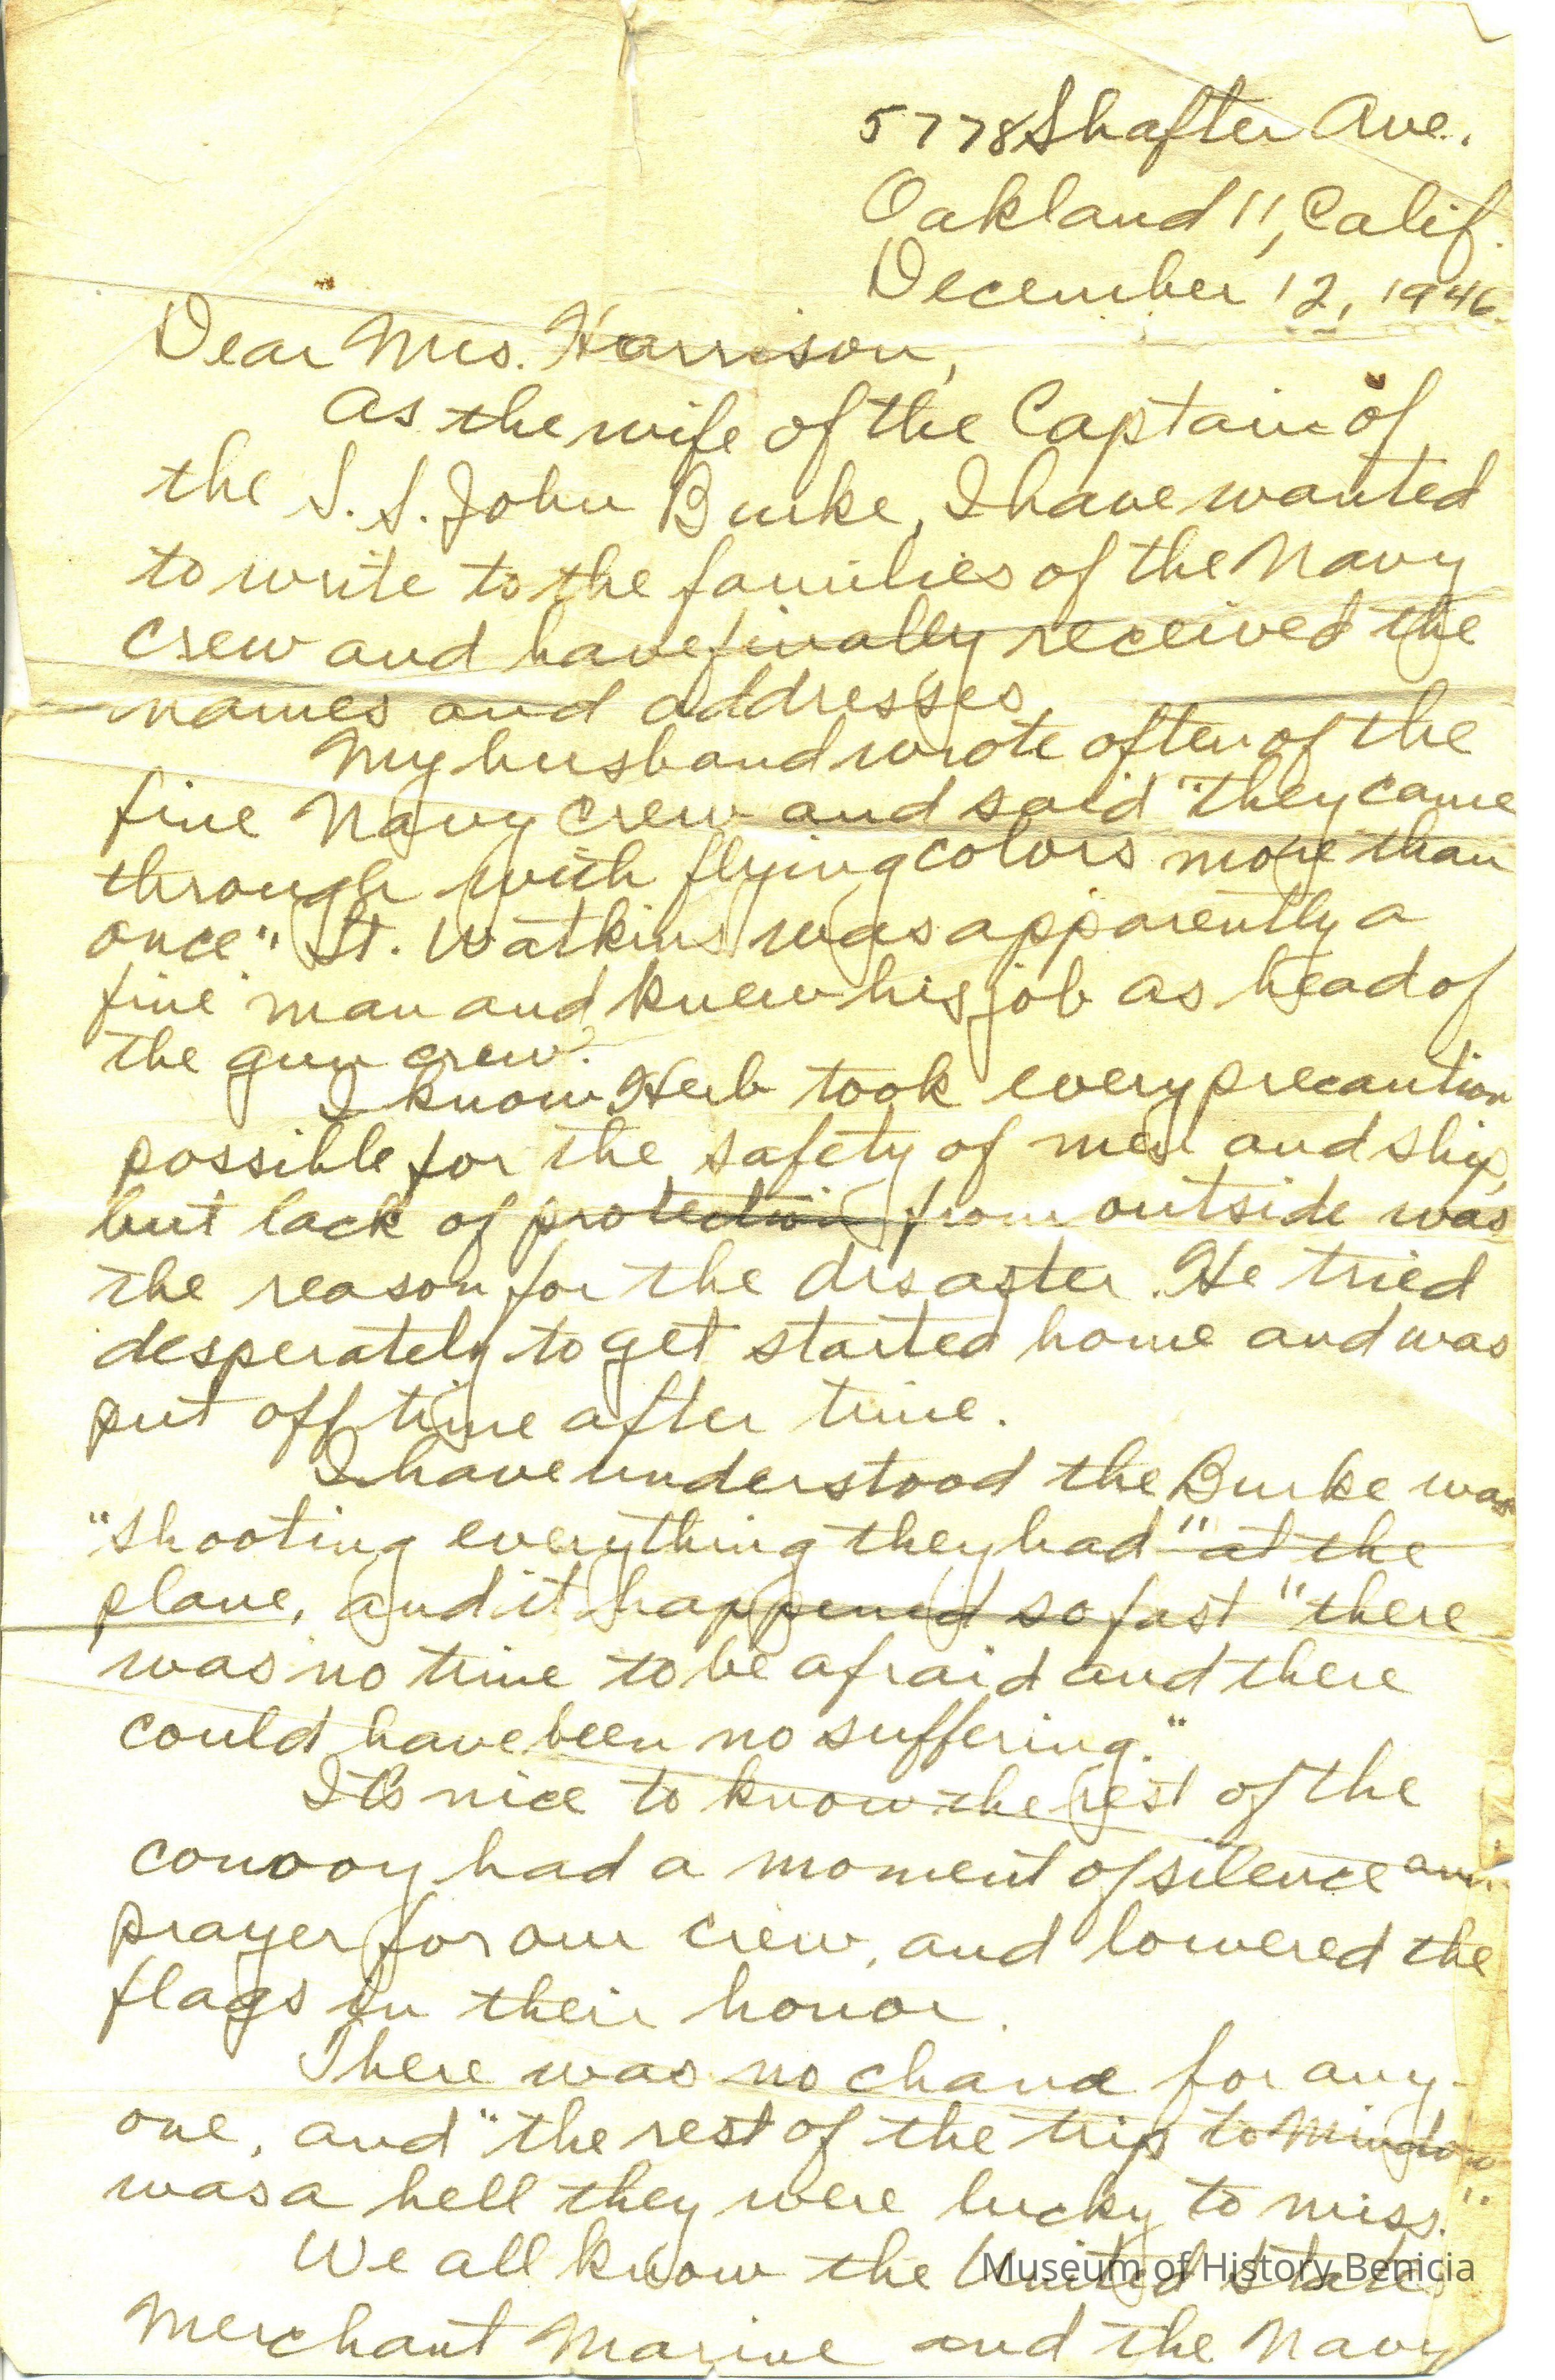 5778 Shafter Ave.
Oakland 11, Calif.
December 12, 1946.
Dear Mrs. Harrison,
As the wife of the Captain of
the S.S. John Burke, I have wanted
to write to the families of the Navy
crew and have finally received the
names and addresses.
My husband wrote often of the
fine Navy crew and said "they came
through with flying colors more than
once". Lt. Watkins was apparently a
fine man and knew his job as head of
the gun crew.
I know Herb took every precaution
possible for the safety of men and ship,
but lack of protection from outside was
the reason for the disaster. He tried
desperately to get started home and was
put off time after time.
I have understood the Burke was
"shooting everything they had" at the
plane, and it happened so fast "there
was no time to be afraid and there
could have been no suffering."
It's nice to know the rest of the
convoy had a moment of silence and
prayer for our crew, and lowered the
flags in their honor.
There was no chance for any-
one, and "the rest of the trip to Mindoro
was a hell they were lucky to miss."
We all know the United States
Museum of History Benicia
Merchant Marine and the Navy